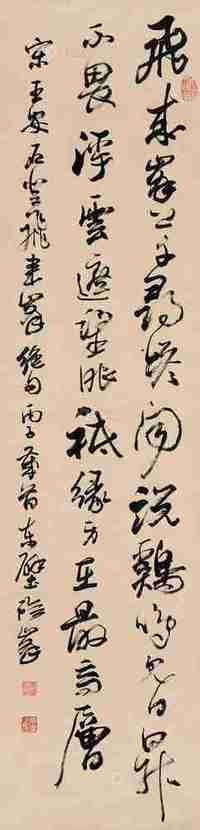 飛來峯上千尋塔聞說鷄鳴見日昇
不畏浮雲遮望眼祗緣身在最高層
宋王安石登飛來峯絕句丙子歲首東壁